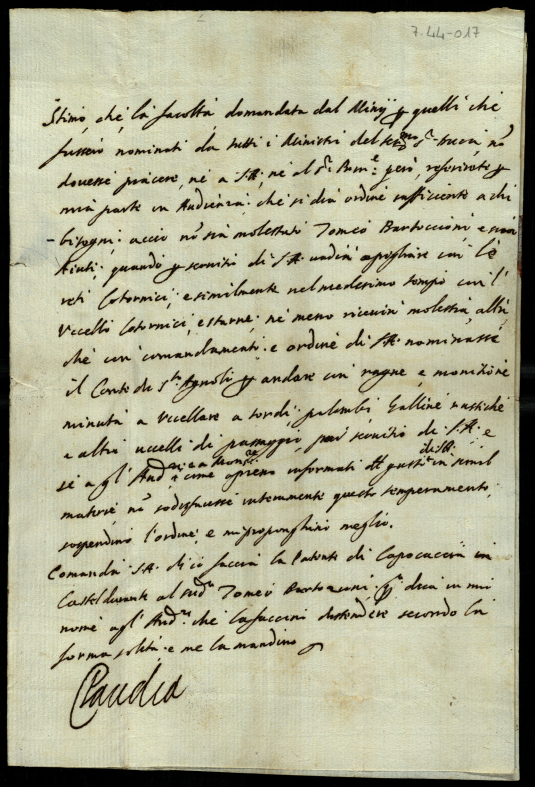 7.44-017
Stimo, che la facoltà domandata dal Miny p quelli che
fussero nominati da tutti i Ministri del
dovesse piacere, né a S.A. né al però, referirete p
mia parte in Audienza, che si dia ordine sufficiente a chi
bisogni, acciò nõ sia molestato Tomeo Bartoccioni e suoi
Aiuti, quando p servitio di S.A. andrà a pigliare con le
reti Cotornici, e similmente nel medesimo tempo con l'
Uccello Cotornici, e starne, né meno riceva molestia, altri
che con comandamento e ordine di S.A. nominasse
il Conte di S.to Agnoli p andare con ragne, e monitione
minuta a Uccellare a tordi, palombi, Galline rustiche
e altri uccelli di passaggio, servitio di S.A. e
se agl' Aud.ri come informati gusti di S.A. in simil
materie, nõ sodisfacesse interamente questo temperamento,
sospendino l'ordine, e mi proponghino meglio.
Comanda S.A. di ciò faccia la Patente di Capocaccia in
Casteldurante al sud.o Tomeo Bartoccioni, dica in mio
nome agl' Aud.ri che la faccino distendere secondo la
forma solita, e me la mandino
Claudia